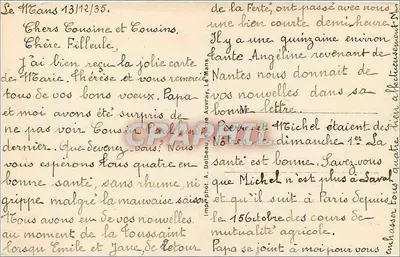 Le Mans 13/12/35.
Chers Cousine et Cousins,
Chère Filleule,
J'ai bien reçu la jolie carte
de Marie-Thérèse et vous remercie
tous de vos bons voeux. Papa
et moi avons été surpris de
ne pas voir
dernier. Que devenez-vous. Nous
vous espérons tous quatre en
bonne santé, sans rhume, ni
grippe malgré la mauvaise
Nous avons eu de vos nouvelles
au moment de la Toussaint
lorsqu Emile et Jane, de retour
de la Ferté, ont passé avec nous
une bien courte demi-heure.
Il y a une quinzaine environ
tante Angéline revenant de
Nantes nous donnait de
vos nouvelles dans sa
bonne lettre.
et Michel étaient des
nôtres dimanche 1er La
santé est bonne. Savez-vous
que Michel n'est plus à Laval
et qu'il suit à Paris depuis
le 15 Octobre des cours de
mutualité agricole.
Papa se joint à moi pour vous
embrasser tous quatre bien affectueusement
Imp. phot. A. Dolbeau, Auvray, Le Mans
CPARAMA